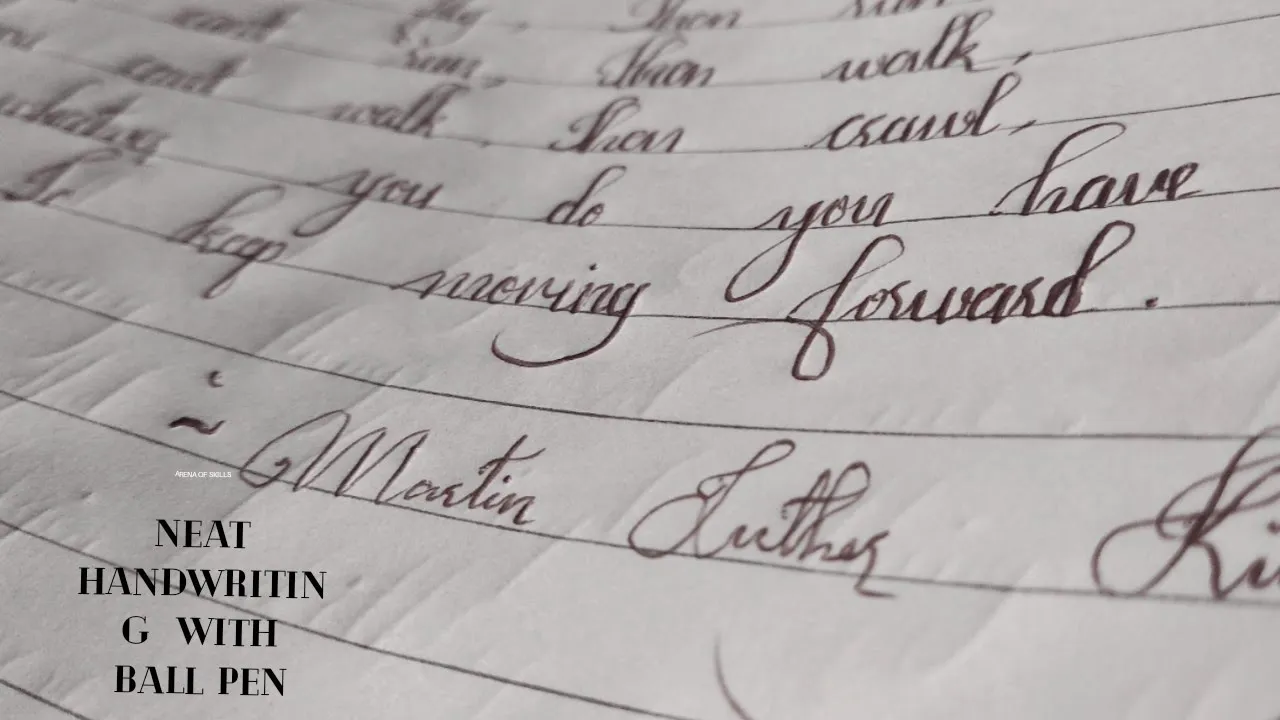 cant fly, Then run
cant run, Then walk,
cant walk, Then crawl,
whatever you do you have
To keep moving forward.
~ Martin Luther Ki
ARENA OF SKILLS
NEAT
HANDWRITIN
G WITH
BALL PEN